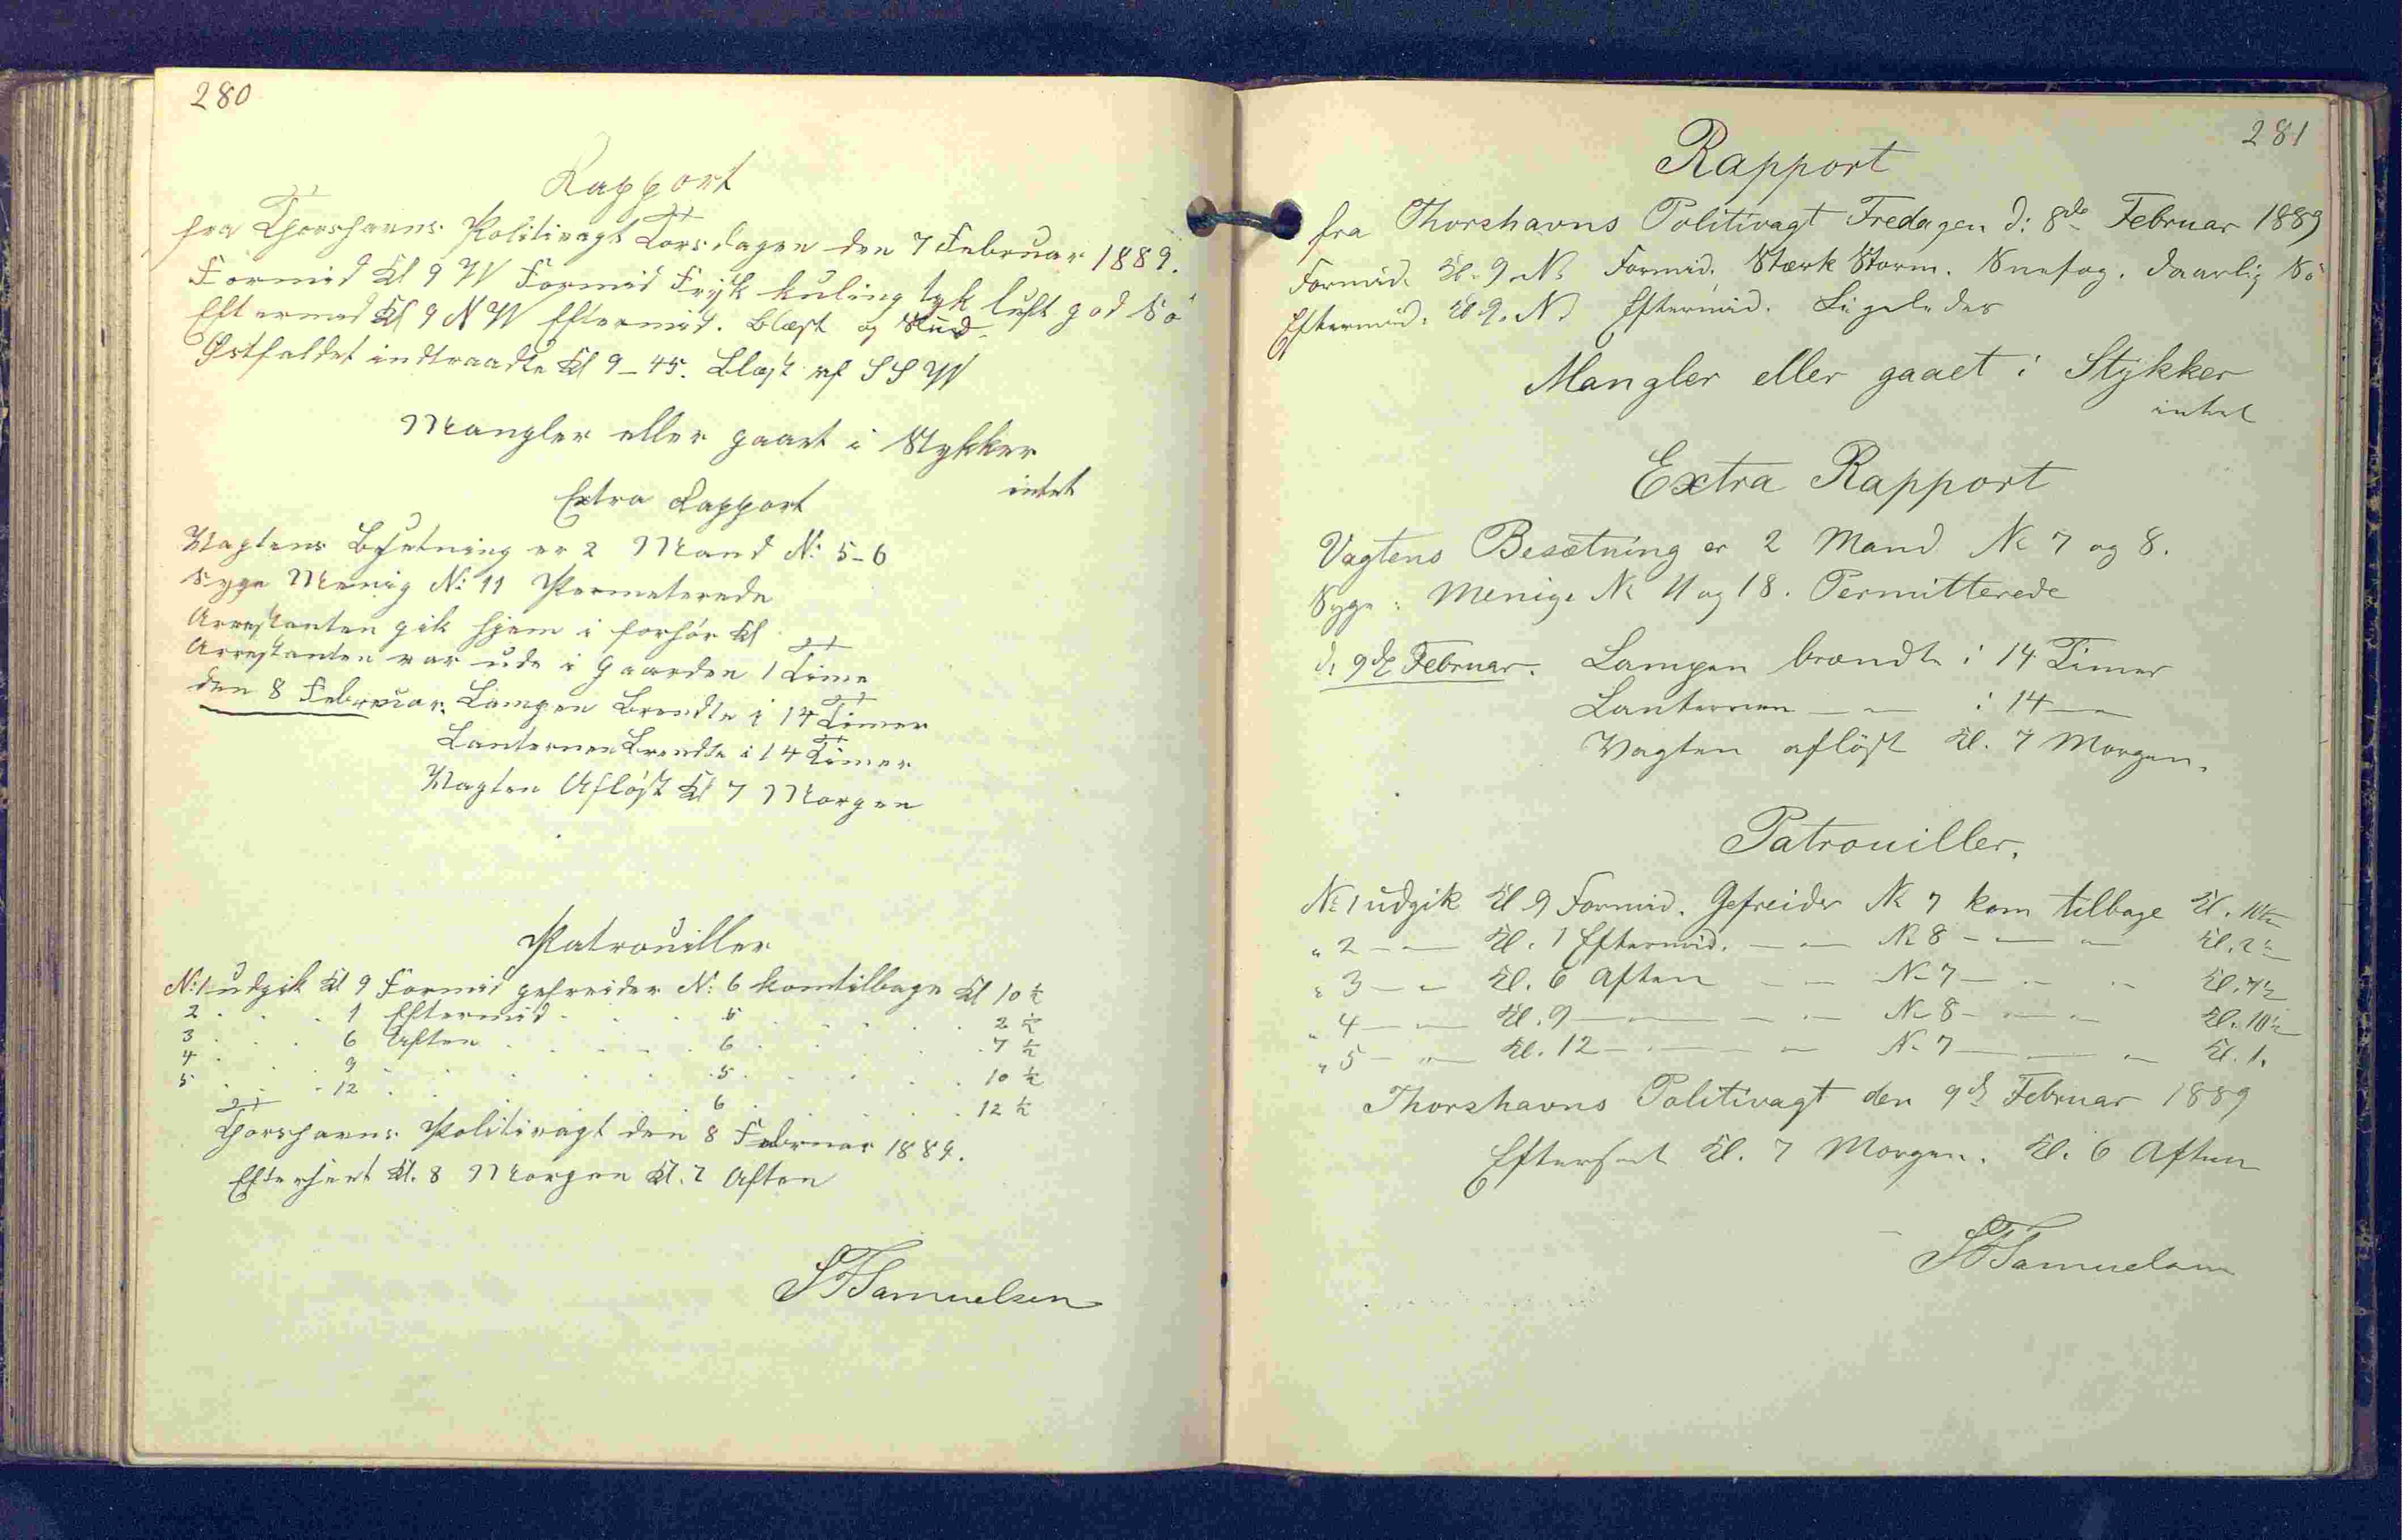 280
Rapport
fra Thorshavns Politivagt Torsdagen den 7 Februar 1889.
Formid Kl 9 W Formid Frisk kuling tyk luft god Sö
Eftermid Kl 9 NW Eftermid. Blæst og Slud
Østfaldet indtraadte Kl 9-45. Blæst af SSW
Mangler eller gaaet i Stykker
intet
Extra Rapport
Vagtens Besetning er 2 Mand N: 5-6
Syge Menig N: 11 Permeterede
Arrestanten gik hjem i forhör Kl
Arrestanten var ude i Gaarden 1 Time
den 8 Februar. Lampen Brendte i 14 Timer
Lanternen Brendte i 14 Timer
Vagten Aflöst Kl 7 Morgen
Patrouiller
N: 1 udgik Kl 9 Formid gefreider N: 6 kom tilbage Kl 10 ½
2 . . . 1 Eftermid . . . 5 . . . 2 ½
3 . . . 6 Aften . . . 6 . . . 7 ½
4 . . . 9 . . . 5 . . . 10 ½
5 . . . 12 . . . 6 . . . 12 ½
Thorshavns Politivagt den 8 Februar 1889.
Efterseet Kl. 8 Morgen Kl. 7 Aften
SFSamuelsen
281
Rapport
fra Thorshavns Politivagt Fredagen d: 8de Februar 1889
Formid. Kl. 9. N. Formid. Stærk Storm. Snefog. daarlig Sö
Eftermid. Kl 9. N. Eftermid. Ligeledes
Mangler eller gaaet i Stykker
intet
Extra Rapport
Vagtens Besætning er 2 Mand No 7 og 8.
Syge: Menige No 11 og 18. Permitterede
d. 9de Februar. Lampen brændte i 14 Timer
Lanternen — „ — i 14 — „
Vagten aflöst Kl. 7 Morgen.
Patrouiller.
No 1 udgik Kl 9 Formid. Gefreider No 7 kom tilbage Kl. 10½
„ 2 — „ — Kl. 1 Eftermid. — „ — No 8 — „ — „ Kl. 2½
„ 3 — „ Kl. 6 Aften — „ — No 7 — „ — „ Kl. 7½
„ 4 — „ — Kl. 9 — „ — „ — No 8 — „ — „ Kl. 10½
„ 5 — „ — Kl. 12 — „ — „ — No 7 — „ — „ Kl. 1.
Thorshavns Politivagt den 9de Februar 1889
Efterseet Kl. 7 Morgen. Kl. 6 Aften
SFSamuelsen